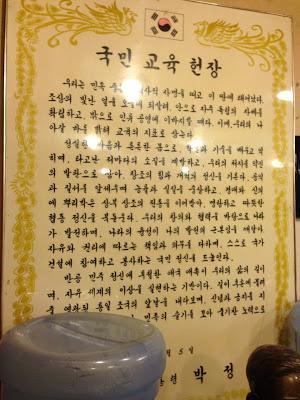 국민 교육 헌장
우리는 민족 사적 사명을 띠고 이 땅에 태어났다.
조상의 빛난 얼을 오늘에 되살려, 안으로 자주 독립의 자세를
확립하고, 밖으로 인류 공영에 이바지할 때다. 이에, 우리의 나
아갈 바를 밝혀 교육의 지표로 삼는다.
성실한 마음과 튼튼한 몸으로, 기술을 배우고 익
히며, 타고난 저마다의 소질을 계발하고, 우리의 처지를 약진
의 발판으로 삼아, 창조의 힘과 개척의 정신을 기른다. 공익
과 질서를 앞세우며 능률과 실질을 숭상하고, 경애와 신의
에 뿌리박은 상부 상조의 전통을 이어받아, 명랑하고 따뜻한
협동 정신을 북돋운다. 우리의 창의와 협력을 바탕으로 나라
가 발전하며, 나라의 융성이 나의 발전의 근본임을 깨달아,
자유와 권리에 따르는 책임과 의무를 다하며, 스스로 국가
건설에 참여하고 봉사하는 국민 정신을 드높인다.
반공 민주 정신에 투철한 애국 애족이 우리의 삶의 길이
며, 자유 세계의 이상을 실현하는 기반이다. 길이 후손에 물려
줄 영광된 통일 조국의 앞날을 내다보며, 신념과 긍지를 지
민족의 슬기를 모아 줄기찬 노력으로
월 5 일
령 박 정